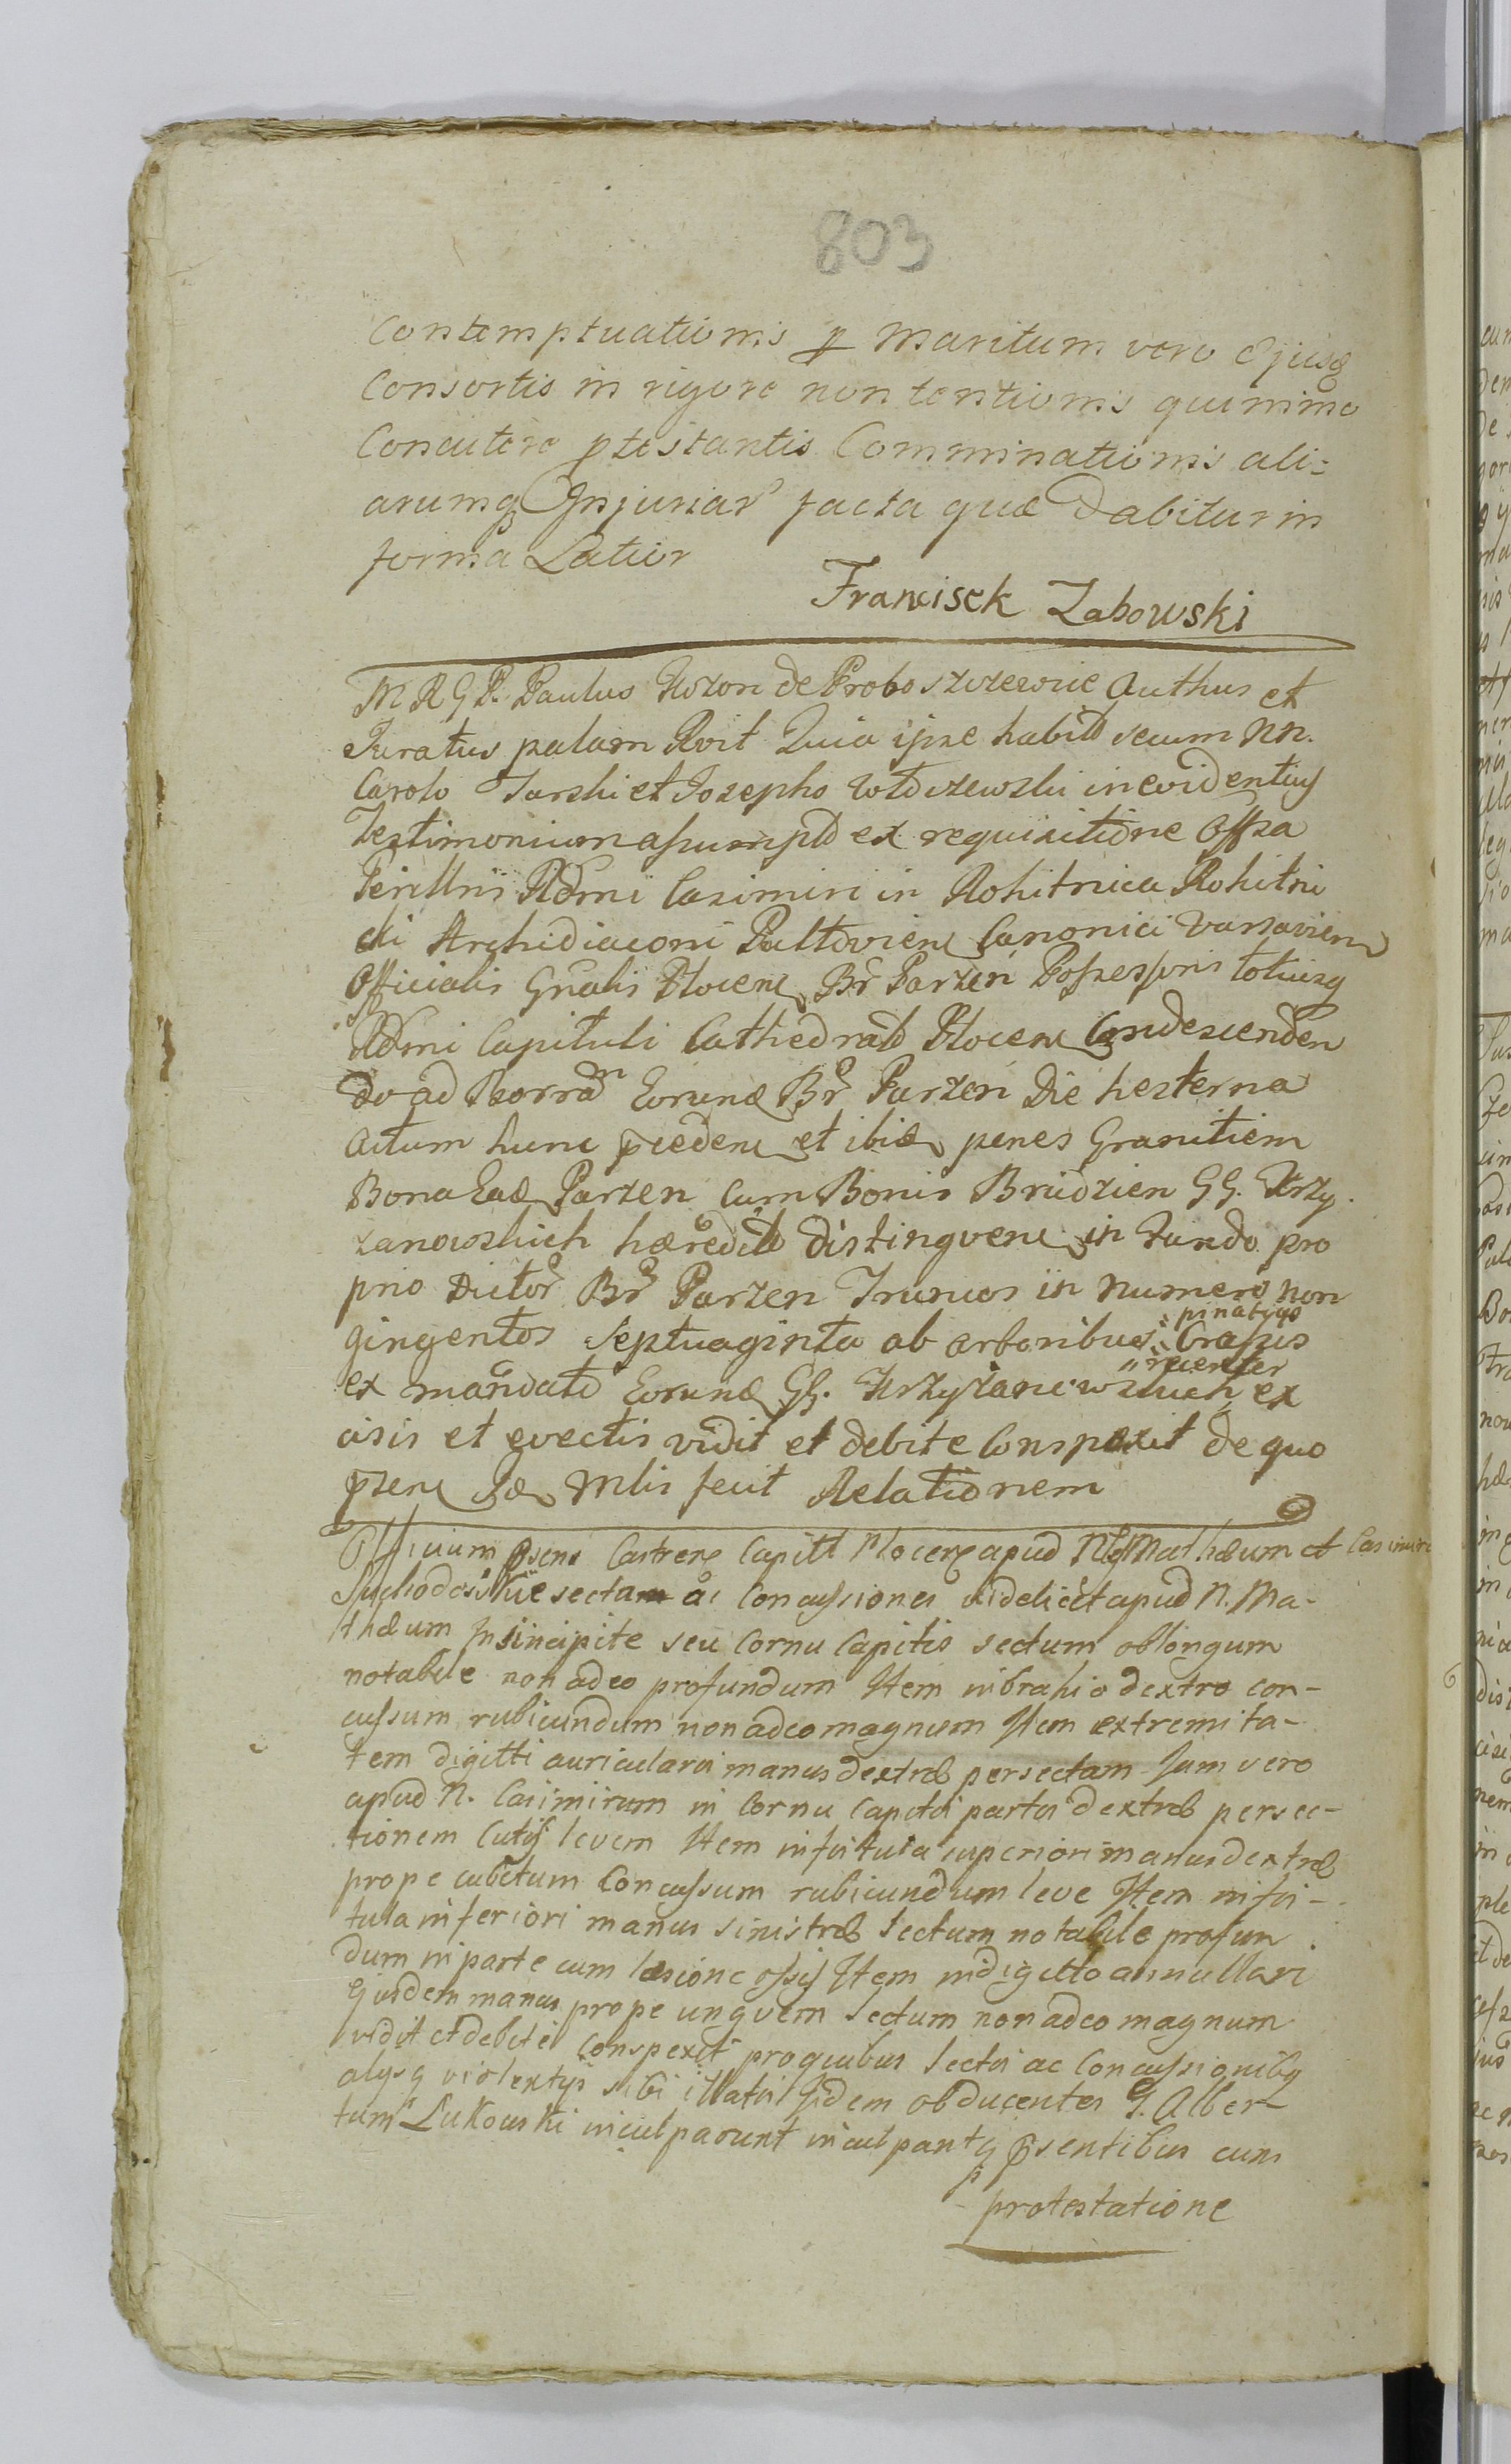 803
Contemptuationis p Maritum vero Ejusq
Consortis in rigore non tentionis quinimo
Concutere ptestantis Comminationis ali=
arumq Injuriar facta quæ Dabitur in
forma Latior
Francisek Zabowski
M R G P. Paulus Kozon de Proboszczewice Authus et
Juratus palam Rvit Quia ipse habitt secum NN.
Carolo Turski et Josepho in evidentius
Testimonium assumptt ex requisitione Offsa
Perillris Rdmi Casimiri in Rokitnica Rokitni
cki Archidiaconi Pultovien Canonici Varsavien
Officialis Gnalis Plocen Br Parzen Possessoris totiusq
Rdmi Capituli Cathedralt Plocen Condescenden
do ad Eorund Br Parzen Die hesterna
Actum hunc pcedem et ibid penes Granitiem
Bona Ead Parzen cum Bonis Brudzien GG. Krzy.
zanowskich hæreditt distingven in Fundo pro
prio Dictor Br Parzen Truncos in Numero non
gingentos Septuaginta ab arboribus pinatys Crassis
ex mandato Eorund GG. Krzyżanowskich recenter ex
cisis et evectis vidit et debite Conspexit de quo
psen Id Mlis fecit Relationem
Officium psens Castrens Capitt Plocens apud NN Mathæum et Casimiru
sectam ac Concussiones videlicet apud N. Ma-
thæum In sincipite seu Cornu Capitis sectum oblongum
notabile non adeo profundum Item in brahio dextro con-
cussum rubicundum non adeo magnum Item extremita-
tem digitti auricularis manus dextræ persectam Jam vero
apud N. Casimirum in Cornu Capitis partis dextræ persec-
tionem Cutis levem Item in fistula superiori manus dextræ
prope cubitum Concussum rubicundum leve Item in fis-
tula inferiori manus sinistræ Sectum notabile profun
dum in parte cum læsione ossis Item in digitto annullari
Ejusdem manus prope ungvem Sectum non adeo magnum
vidit et debite conspexit pro quibus Sectis ac Concussionibq
alysq violentys sibi illatis Iidem obducentes G. Alber-
tum Lukowski inculparunt inculpantq psentibus cum
protestatione